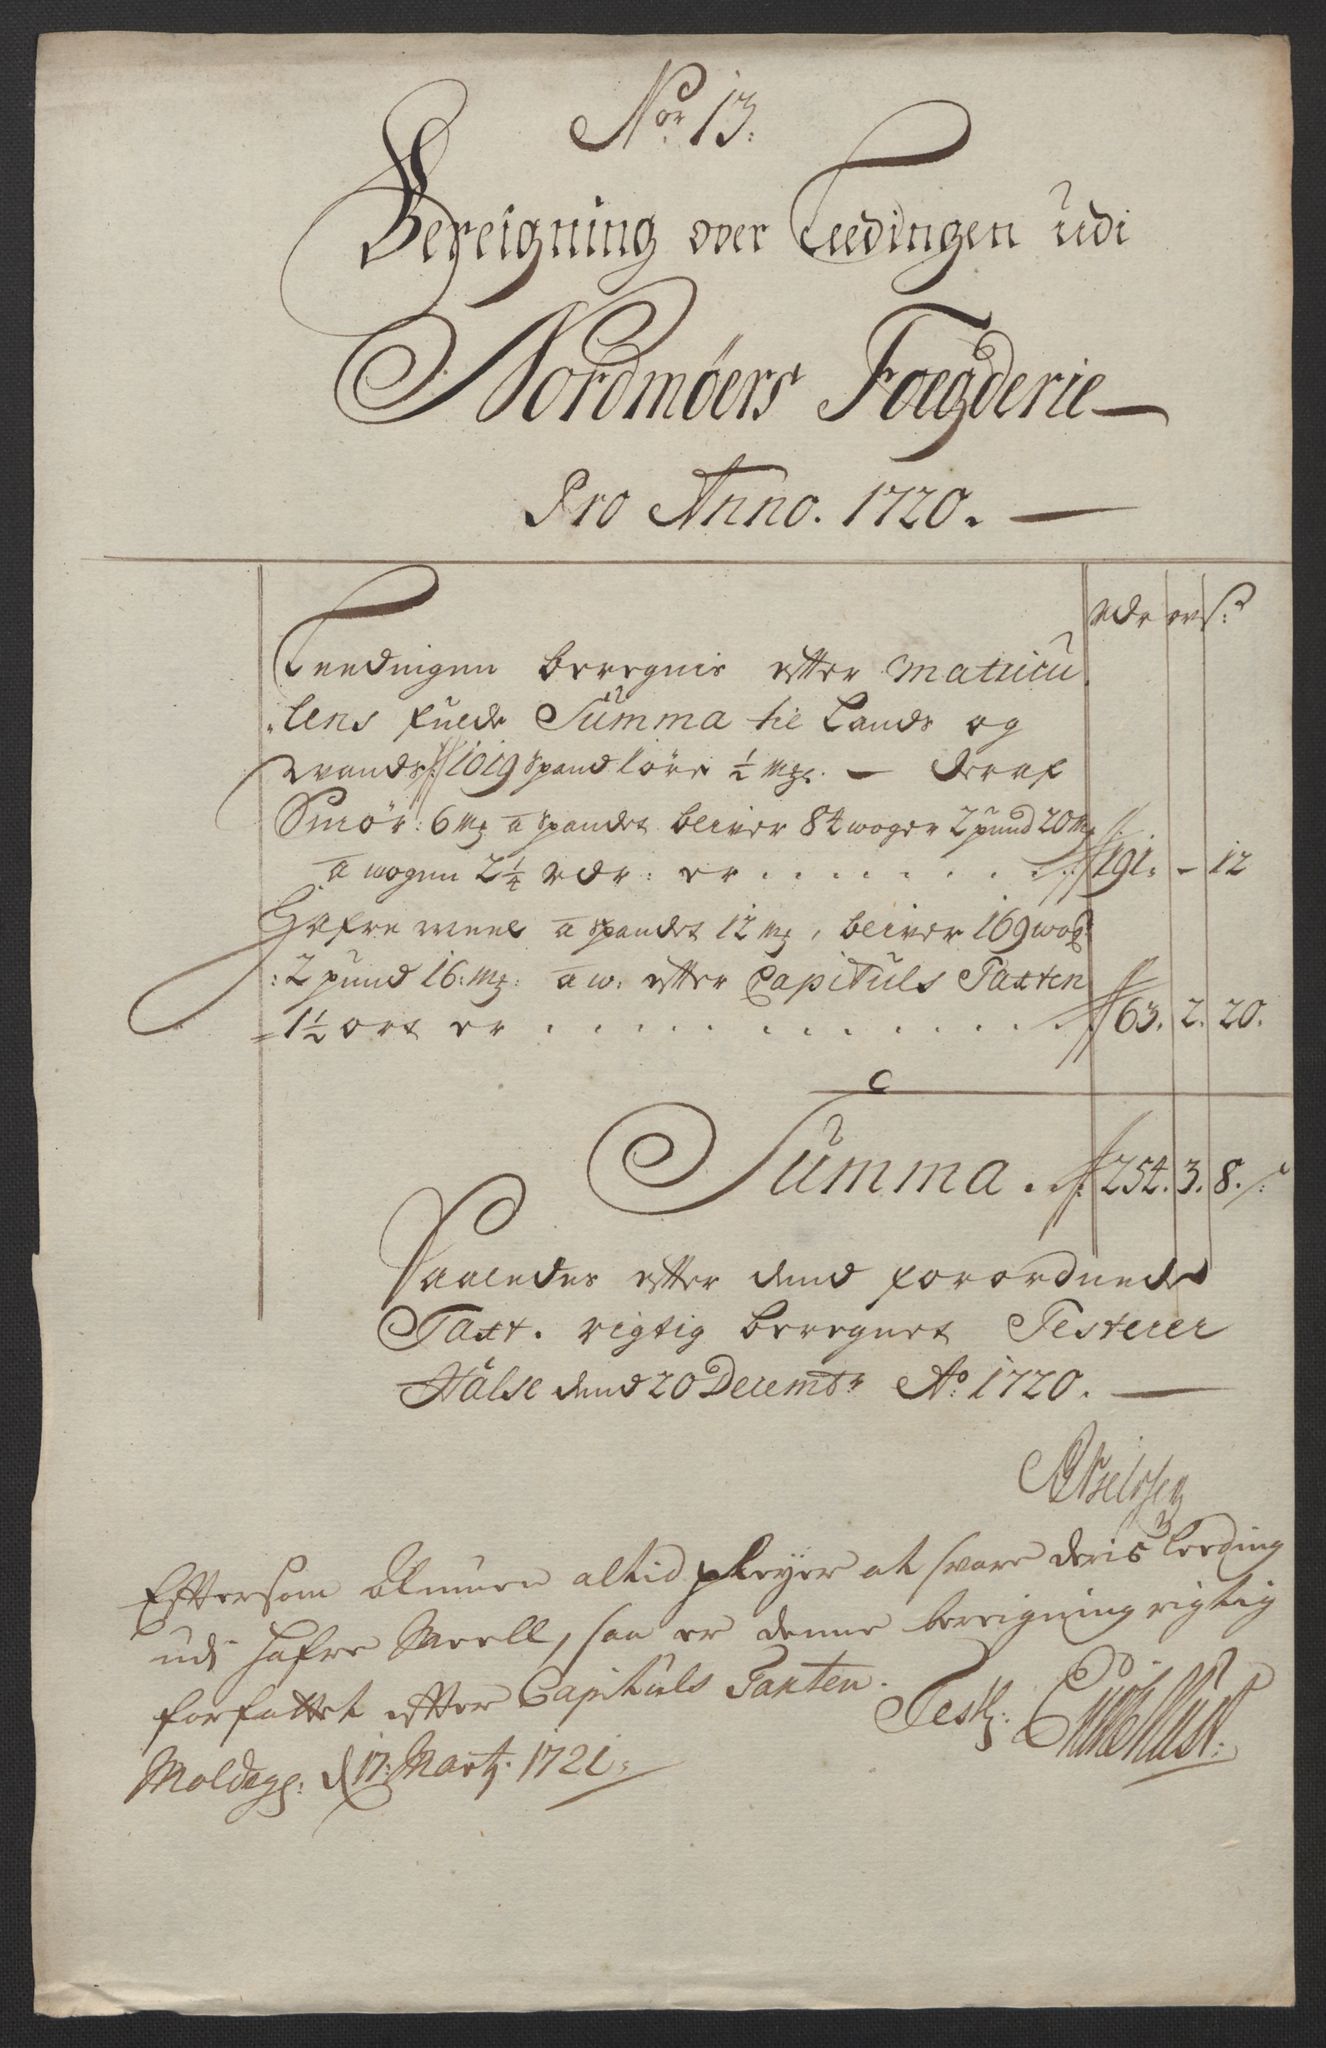 Nor 13.
Bereigning over Leedingen udi
Nordmøers Foegderie
Pro Anno. 1720.
rdr ort s:
Leedingen beregnis efter Matricu
lens fulde Summa til Lands og
Wands: 1019 Spand 1 øre ½ Mkl. — deraf
Smør: 6 Mk a Spandet bliver 84 woger 2 pund 20 Mk
a wogen 2¼ rdr: er . . . . . . . 191. – 12
Hafre meel a Spandet 12 Mk, bliver 169 wog
2 pund 16 Mk: a w: efter Capituls Taxten
1½ ort er . . . . . . . . . . . . 63. 2. 20.
Summa . . 254. 3. 8.
Saaledes efter dend forordnede
Taxt. rigtig beregnet Testerer
Halse dend 20 Decembr Ao 1720.
Eftersom Almuen altid pleyer at svare deris Leeding
udj Hafre Meell, saa er denne bereigning rigtig
forfattet efter Capituls Taxten.
Moldegr. d 17: Martz. 1721.
Testr: